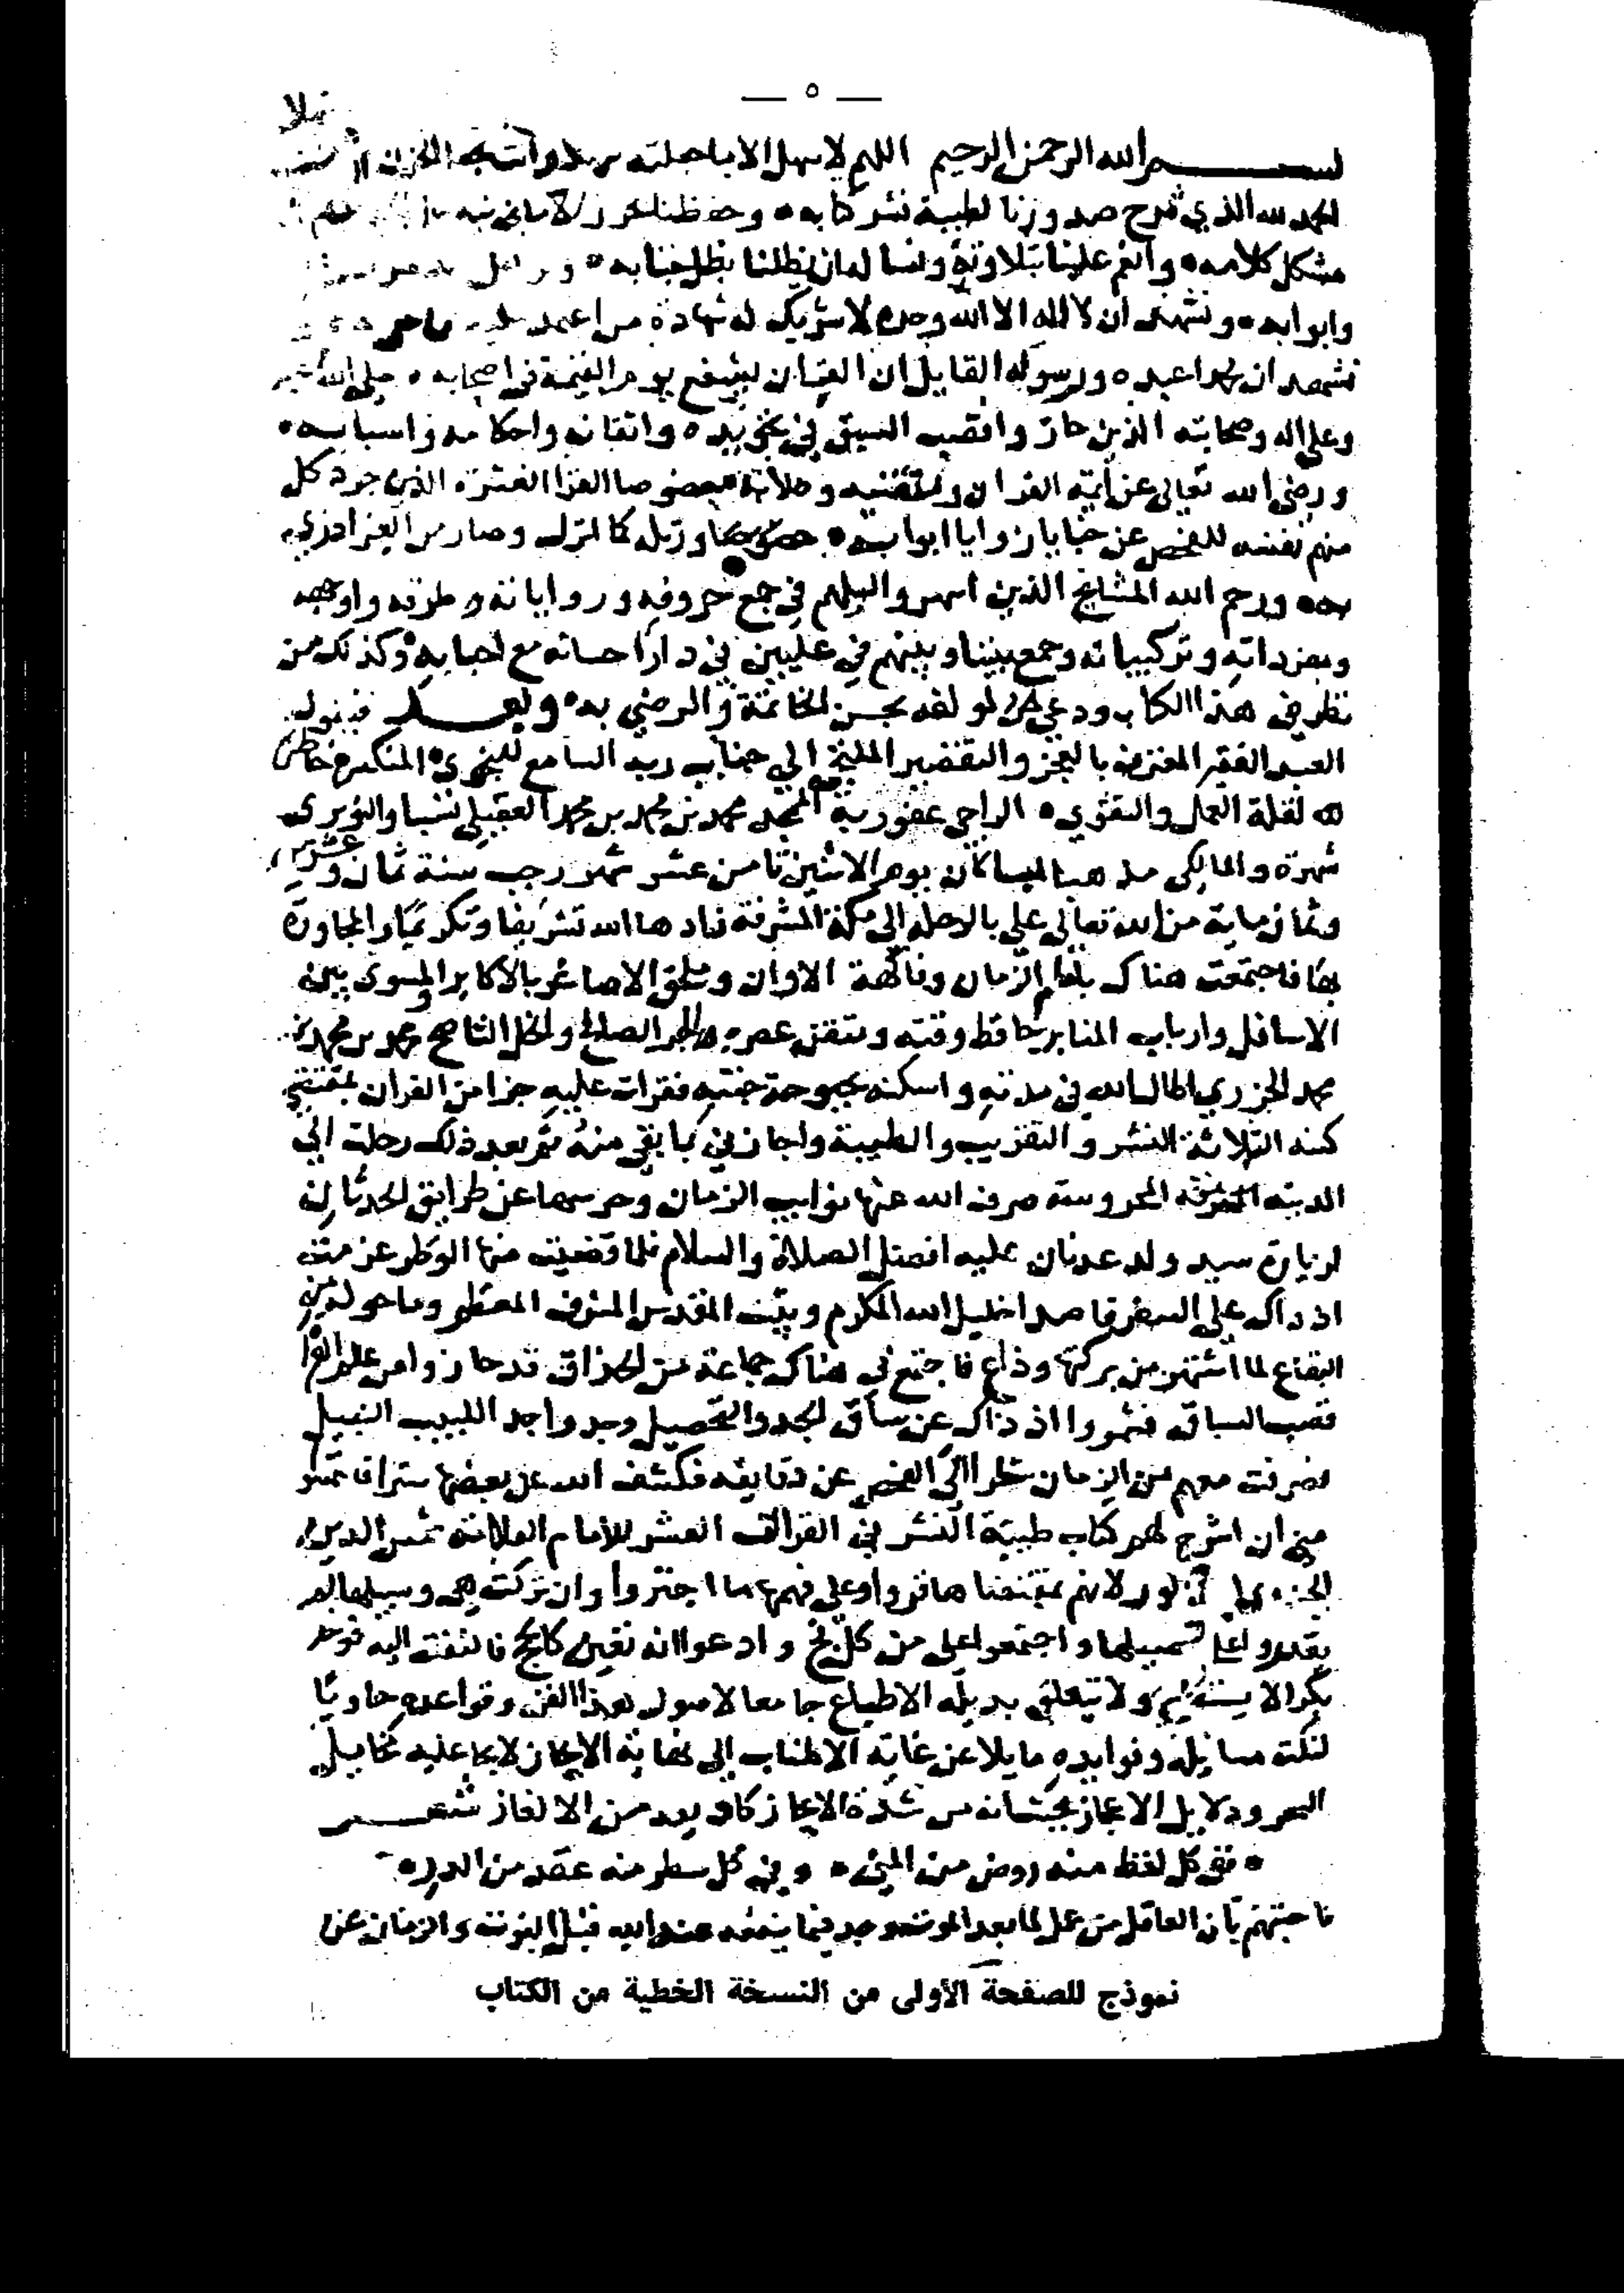 — ٥ —
بسم الله الرحمن الرحيم اللهم لا سهل الا ما جعلته سهلا وانت تجعل الحزن اذا شئت سهلا
الحمد لله الذي شرح صدورنا لطيبة نشر كتابه وحفظنا لحرز الاماني
مشكل كلامه وانعم علينا بتلاوته ونسأله ان يظلنا بظل جنابه
وابوابه ونشهد ان لا اله الا الله وحده لا شريك له شهادة من اعتمد عليه
نشهد ان محمدا عبده ورسوله القايل ان القران ليشفع يوم القيمة في اصحابه صلى الله عليه
وعلى اله وصحابته الذين حازوا قصب السبق في تجويده واتقانه واحكامه واسبابه
ورضي الله تعالى عن ايمة القران ومتقنيه خصوصا القرا العشرة الذين جرد كل
منهم نفسه للفحص عن خبايا زوايا ابوابه ورتله كما انزل وصار من
ورحم الله المشايخ الذين اسهروا ليلهم في جمع حروفه ورواياته وطرقه واوجهه
ومفرداته وتركيباته وجمع بيننا وبينهم في عليين في دار احسانه مع احبابه وكذلك من
نظر في هذا الكتاب ودعي لمولفه بحسن الخاتمة والرضى به وبعد فيقول
العبد الفقير المعترف بالعجز والتقصير الملتجئ الى جناب ربه السامع للنجوى المنكسر خاطره
لقلة العمل والتقوى الراجي عفو ربه محمد بن محمد بن محمد العقيلي نسبا والنويري
شهرة والمالكي مذهبا لما كان يوم الاثنين ثامن عشر شهر رجب سنة ثمان وعشرين
وثمانماية من الله تعالى علي بالرحلة الى مكة المشرفة زادها الله تشريفا وتكريما والمجاورة
بها فاجتمعت هناك بامام الزمان وفاكهة الاوان وملحق الاصاغر بالاكابر والمسوى بين
الاسافل وارباب المنابر حافظ وقته ومتقن عصره والحبر الصالح والخل الناصح محمد بن محمد بن
محمد الجزري اطال الله في مدته واسكنه بحبوحة جنته فقرات عليه جزا من القران بمقتضى
كتبه الثلاثة النشر والتقريب والطيبة واجازني بما بقي منه ثم بعد ذلك رحلت الى
المدينة الشريفة المحروسة صرف الله عنها نوايب الزمان وحرسها عن طرايق الحدثان
لزيارة سيد ولد عدنان عليه افضل الصلاة والسلام فلما قضيت منها الوطر عزمت
اذ ذاك على السفر قاصدا خليل الله المكرم وبيت المقدس المشرف المعظم وما حوله من
البقاع لما اشتهر من بركتها وذاع فاجتمع بي هناك جماعة من الحذاق قد حازوا من علم القرا
قصب السباق فشمروا اذ ذاك عن ساق الجد والتحصيل وجد واجد اللبيب النبيل
فصرفت معهم من الزمان شطرا الى الفحص عن دقايقه فكشف الله عن بعضها سترا فالتمسوا
مني ان اشرح لهم كتاب طيبة النشر في القراات العشر للامام العلامة شمس الدين بن
الجزري المذكور لانهم بمقتضاها قروا وعلى فهمها ما اجتروا وان تركت هي وسبيلها لم
يقدروا على تحصيلها واجتمعوا علي من كل فج وادعوا انه تعين كالحج فالتفت اليه فوجدته
بكرا لا يستطيع ولا يتعلق بذيله الاطماع جامعا لاصول هذا الفن وقواعده حاويا
لنكت مسايله وفوايده مايلا عن غاية الاطناب الى نهاية الايجاز لايحا عليه مخايل
السحر ودلايل الاعجاز بحيث انه من شدة الايجاز كاد يعد من الالغاز شعر
ففي كل لفظ منه روض من المنى وفي كل سطر منه عقد من الدرر
فاجبتهم بان العاقل من عمل لما بعد الموت وجد فيما ينفعه عند الله قبل الفوت والزمان عن
نموذج للصفحة الأولى من النسخة الخطية من الكتاب